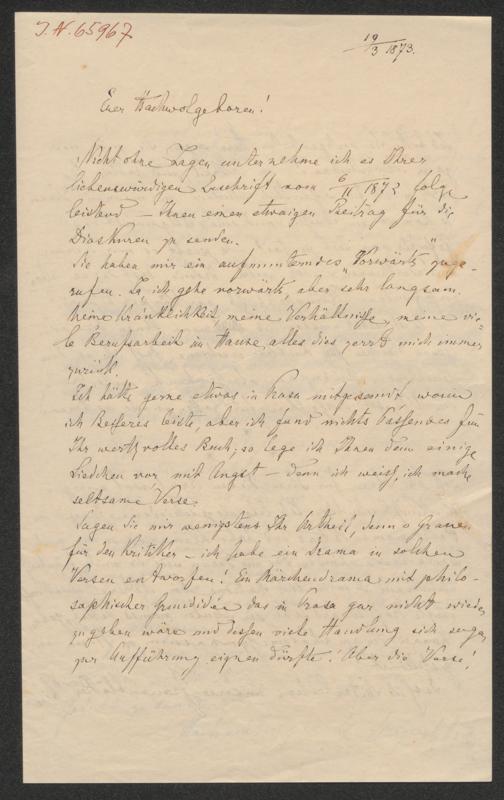 J. N. 65967
19/3 1873.
Euer Hochwolgeboren!
Nicht ohne Zagen unternehme ich es Ihrer
liebenswürdigen Zuschrift vom 6/11 1872 folge
leistend – Ihnen einen etwaigen Beitrag für die
Dioskuren zu senden.
Sie haben mir ein aufmunterndes „Vorwärts" zuge-
rufen. Ja, ich gehe vorwärts, aber sehr langsam.
Meine Kränklichkeit, meine Verhältnisse, meine vie-
le Berufsarbeit im Hause, alles dies zerrt mich immer
zurück.
Ich hätte gerne etwas in Prosa mitgesandt worin
ich Besseres leiste, aber ich fand nichts Passendes für
Ihr werthvolles Buch; so lege ich Ihnen denn einige
Liedchen vor, mit Angst – denn ich weiß, ich mache
seltsame Verse.
Sagen Sie mir wenigstens Ihr Urtheil, denn o Grauen
für den Kritiker – ich habe ein Drama in solchen
Versen entworfen! Ein Märchendrama mit philo-
sophischer Grundidée das in Prosa gar nicht wieder
zugeben wäre und dessen viele Handlung sich sogar
zur Aufführung eignen dürfte! Aber die Verse!